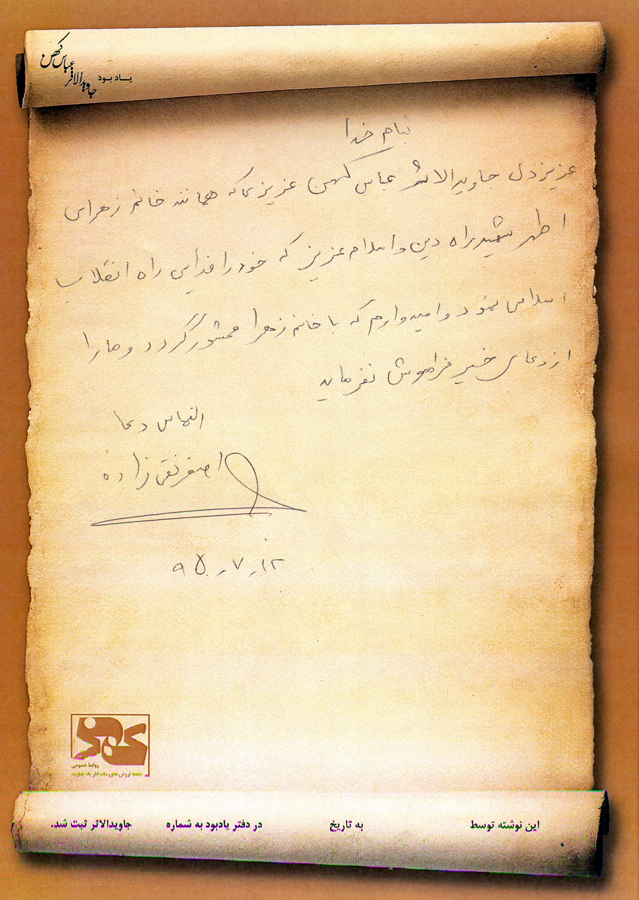 یادبود
جاویدالاثر
عباس کهن
بنام خدا
عزیز دل جاویدالاثر عباس کهن عزیزی که همانند خانم زهرای
اطهر شهید راه دین و اسلام عزیز که خود را فدای راه انقلاب
اسلامی نمود و امیدوارم که با خانم زهرا محشور گردد و ما را
از دعای خیر فراموش نفرماید
التماس دعا
اصغر نقی زاده
۹۵٫۷٫۱۲
کهن
روابط عمومی
این نوشته توسط به تاریخ در دفتر یادبود به شماره جاویدالاثر ثبت شد.